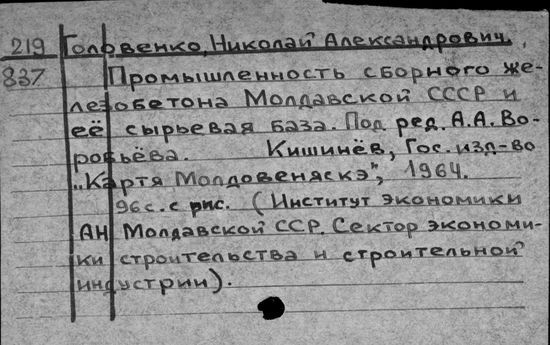 219 Головенко, Николай Александрович.
837 Промышленность сборного же-
лезобетона Молдавской СССР и
её сырьевая база. Под ред. А.А. Во-
робьёва. Кишинёв, Гос. изд-во
„Картя Молдовеняскэ", 1964.
96 с. с рис. (Институт экономики
АН Молдавской ССР. Сектор экономи-
ки строительства и строительной
индустрии).